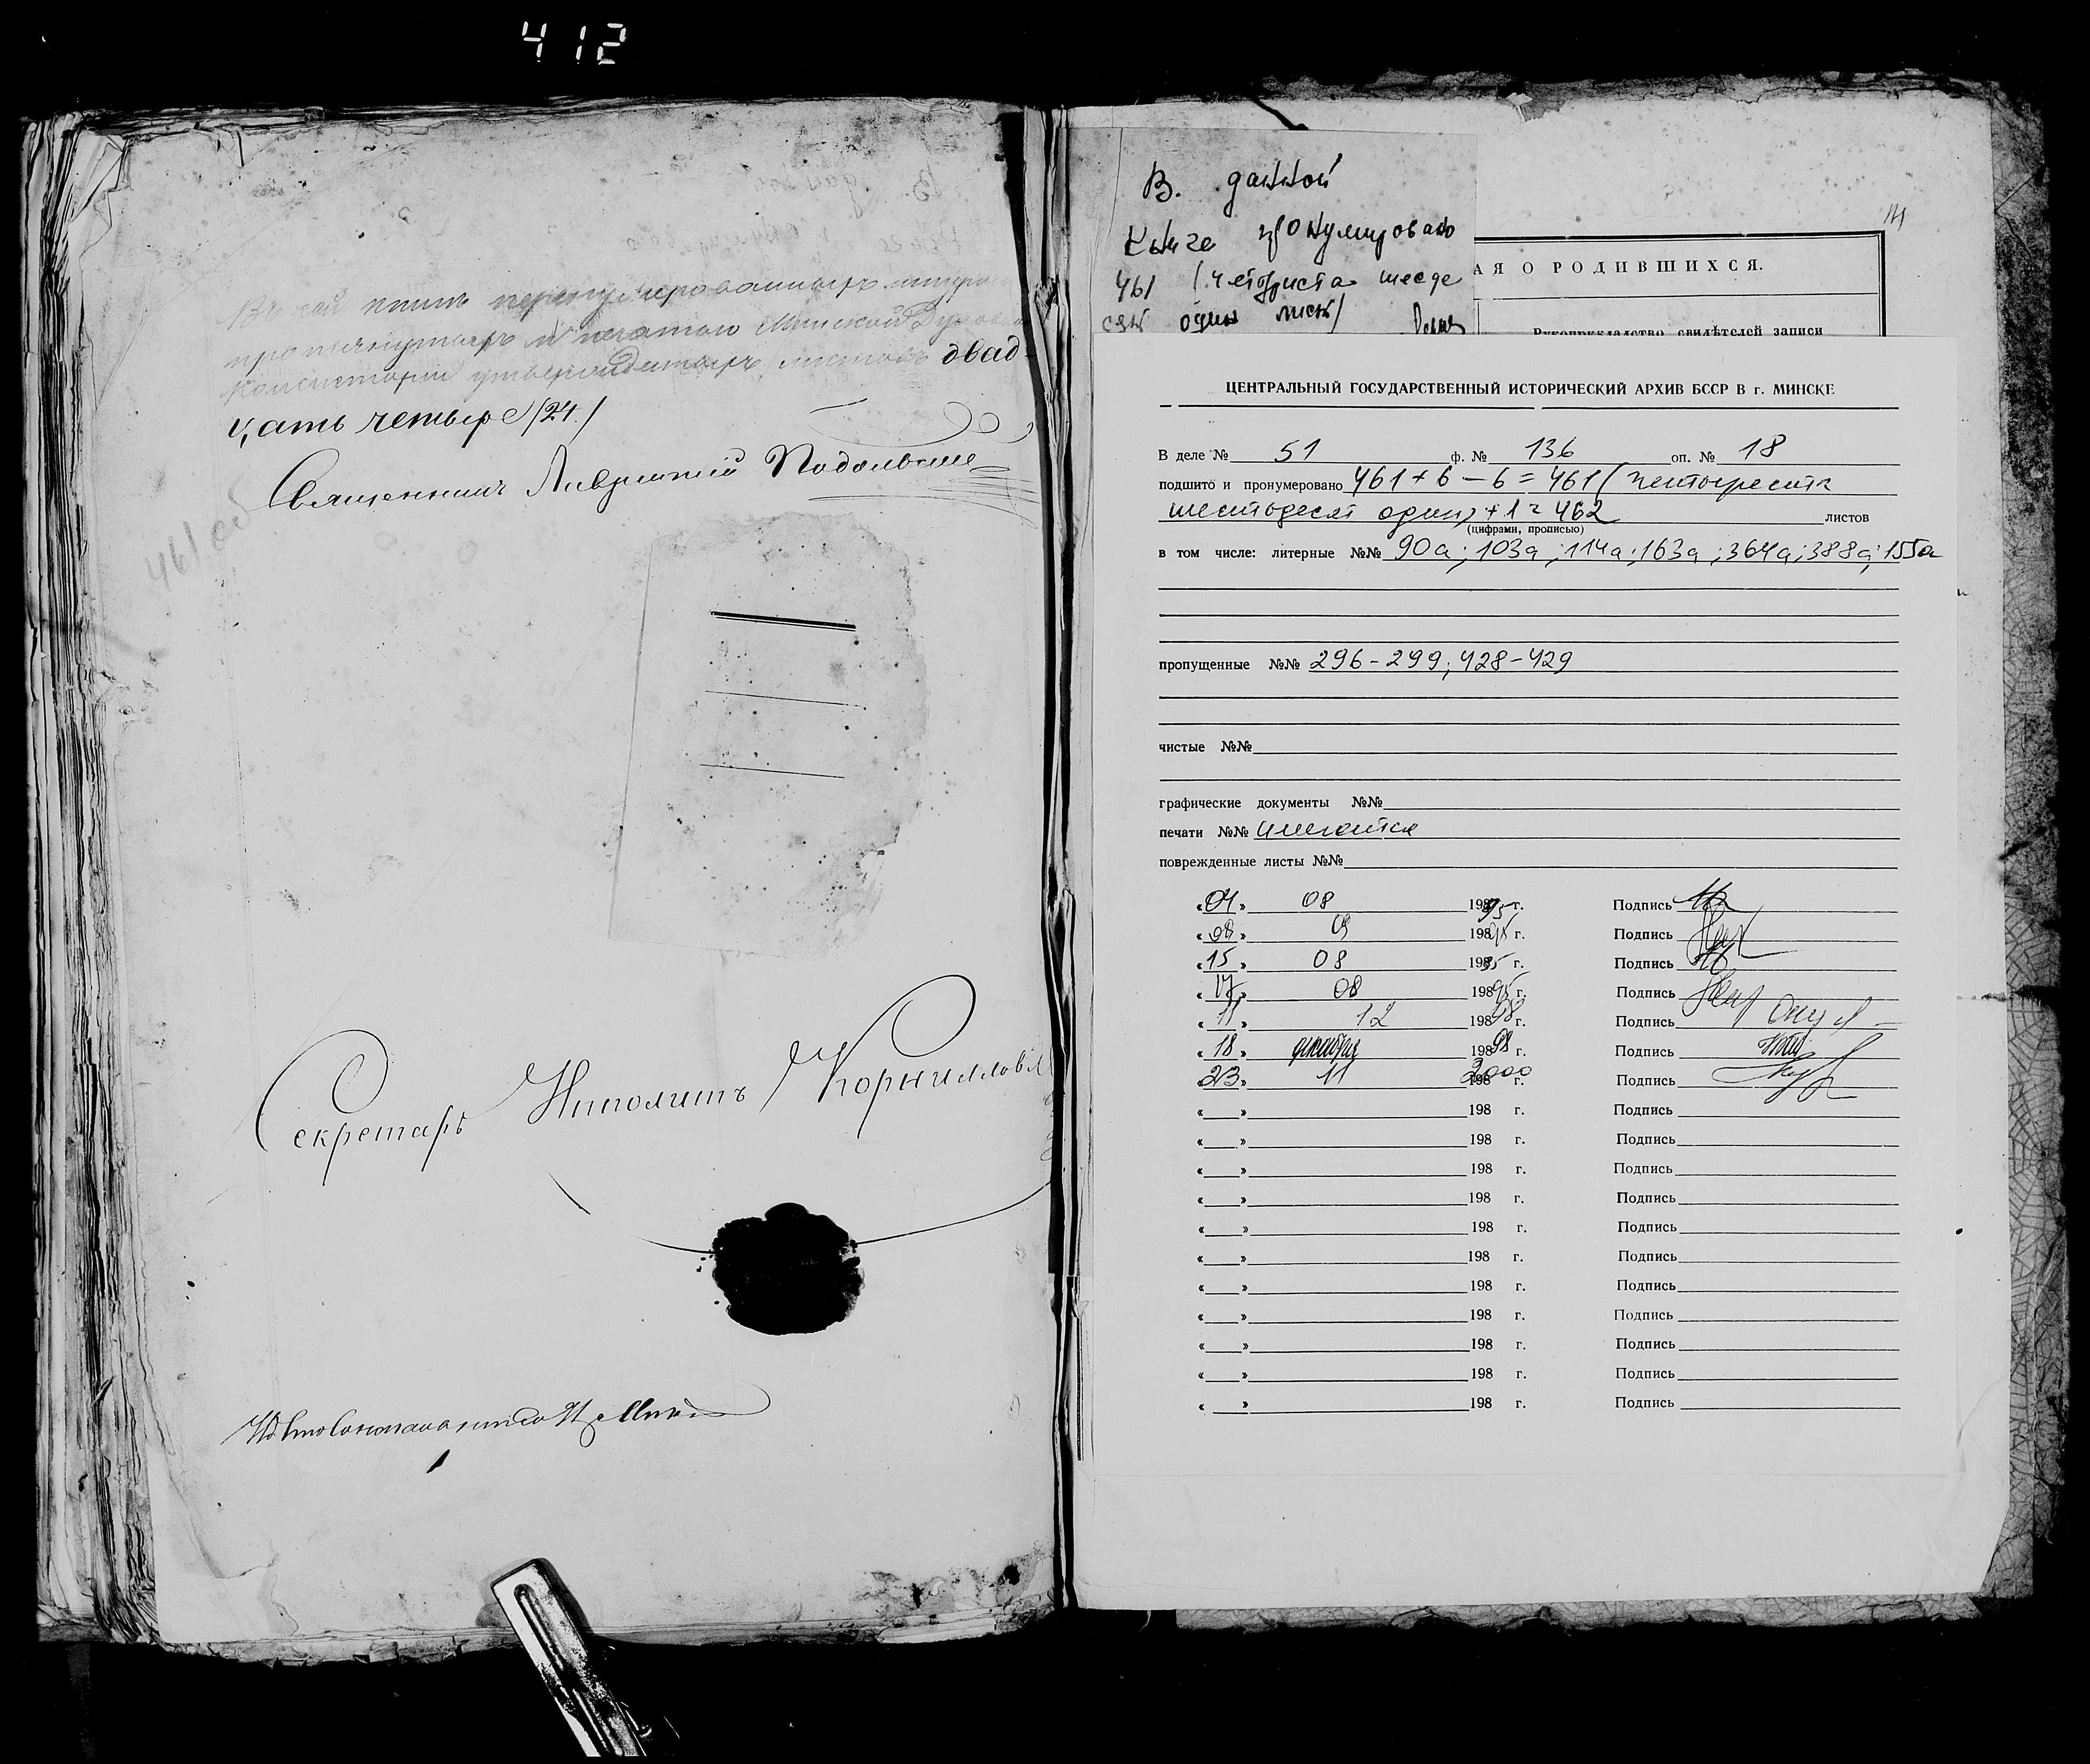 412
Въ сей книгѣ перенумерованныхъ
и печатью Минской Духовной
Консисторіи листовъ двад-
цать четыре /24/
Священникъ Подольскій
461 об
Секретарь Ипполитъ
В. данной
книге пронумировано
461 (четориста шесде
сят один лист)
АЯ О РОДИВШИХСЯ.
Рукоприкладство свидѣтелей записи
ЦЕНТРАЛЬНЫЙ ГОСУДАРСТВЕННЫЙ ИСТОРИЧЕСКИЙ АРХИВ БССР В г. МИНСКЕ
В деле № 51 ф. № 136 оп. № 18
подшито и пронумеровано 461 + 6 – 6 = 461 ( четыреста
шестьдесят один) + 1 = 462 листов
(цифрами, прописью)
в том числе: литерные №№ 90а; 103а; 114а; 163а; 364а; 388а; 155а
пропущенные №№ 296 - 299; 428 - 429
чистые №№
графические документы №№
печати №№ имеются
поврежденные листы №№
«04» 08 19895 г. Подпись
«08» 198 г. Подпись
«15» 08 19895 г. Подпись
«17» 08 19895 г. Подпись
«11» 12 19898 г. Подпись
«18» декабря 19898 г. Подпись
«23» 11 2000 г. Подпись
« » 198 г. Подпись
« » 198 г. Подпись
« » 198 г. Подпись
« » 198 г. Подпись
« » 198 г. Подпись
« » 198 г. Подпись
« » 198 г. Подпись
« » 198 г. Подпись
« » 198 г. Подпись
« » 198 г. Подпись
« » 198 г. Подпись